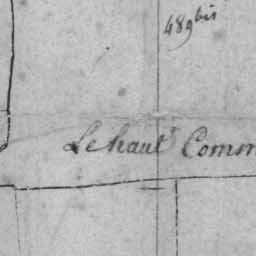 489bis
Le haut Comm